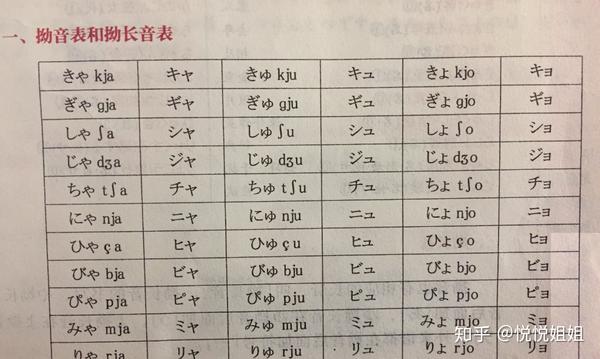 一、拗音表和拗长音表
きゃ kja キャ きゅ kju キュ きょ kjo キョ
ぎゃ gja ギャ ぎゅ gju ギュ ぎょ gjo ギョ
しゃ ʃa シャ しゅ ʃu シュ しょ ʃo ショ
じゃ dʒa ジャ じゅ dʒu ジュ じょ dʒo ジョ
ちゃ tʃa チャ ちゅ tʃu チュ ちょ tʃo チョ
にゃ nja ニャ にゅ nju ニュ にょ njo ニョ
ひゃ ça ヒャ ひゅ çu ヒュ ひょ ço ヒョ
びゃ bja ビャ びゅ bju ビュ びょ bjo ビョ
ぴゃ pja ピャ ぴゅ pju ピュ ぴょ pjo ピョ
みゃ mja ミャ みゅ mju ミュ みょ mjo ミョ
りゃ rja リャ りゅ rju リュ りょ rjo リョ
知乎 @悦悦姐姐